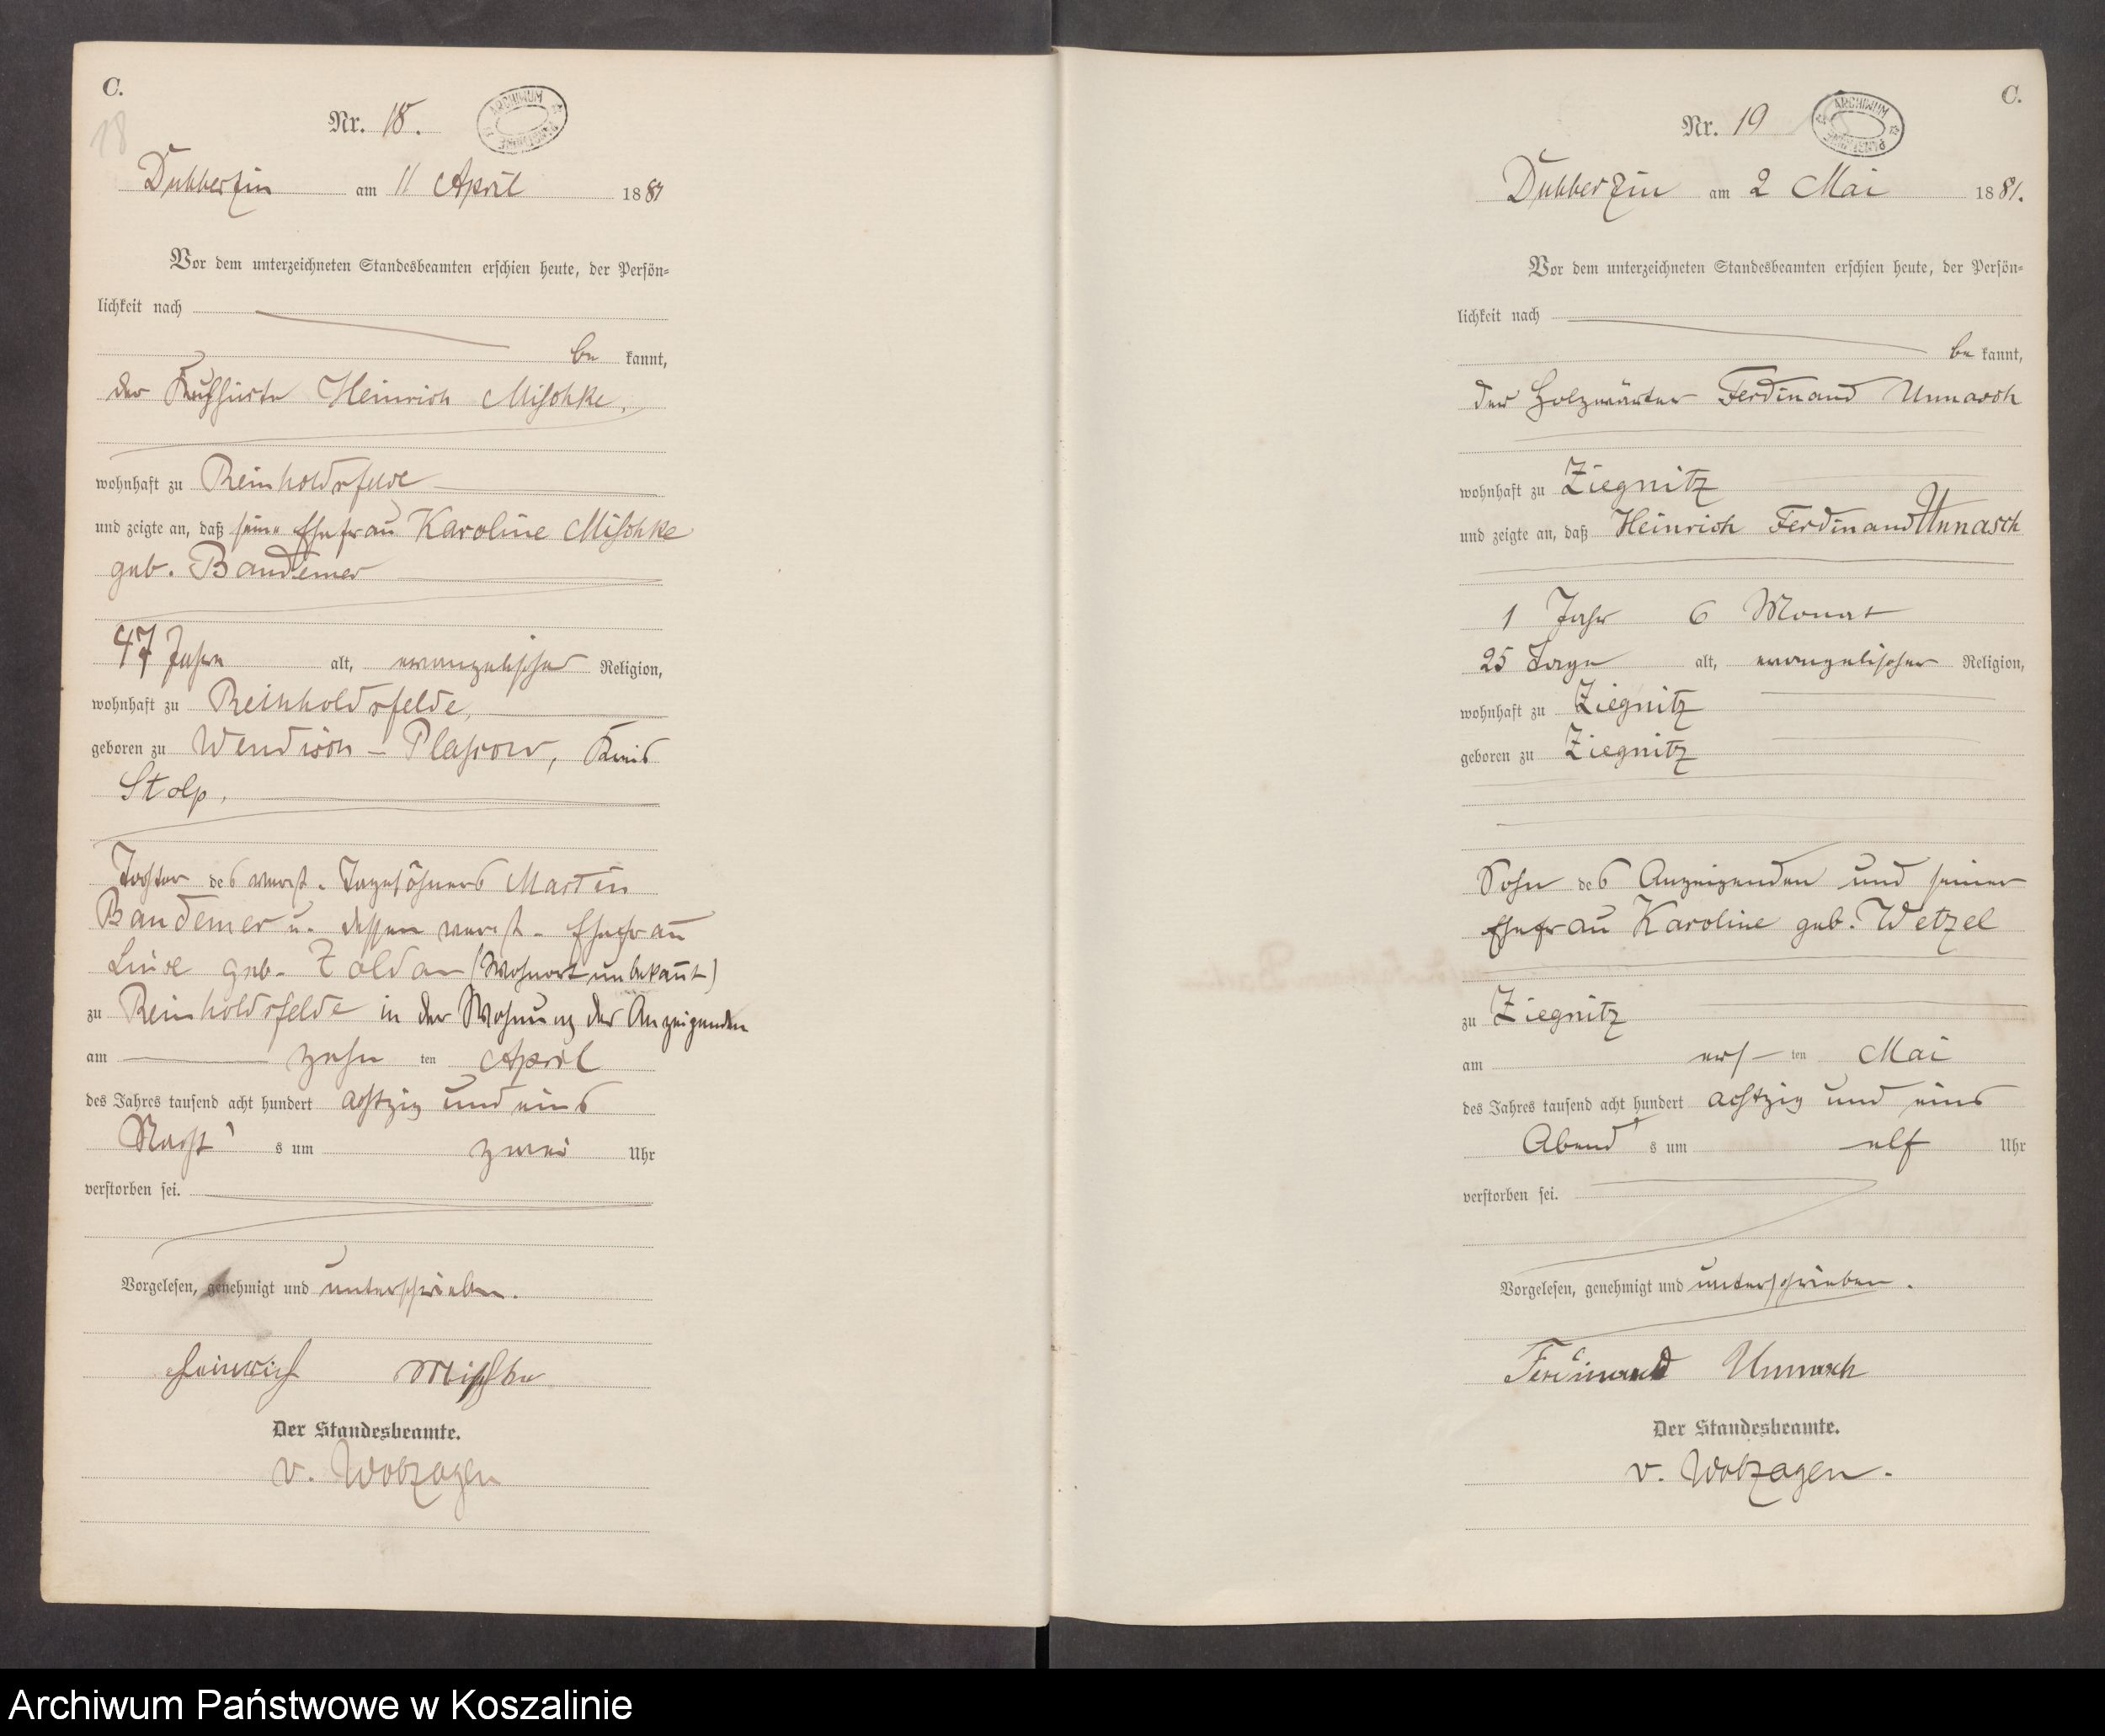 C.
18
Nr. 18.
ARCHIWUM PAŃSTWOWE
Dubberzin am 11 April 1881
Vor dem unterzeichneten Standesbeamten erschien heute, der Persön-
lichkeit nach
be kannt,
der Heinrich Mischke,
wohnhaft zu Reinholdsfelde
und zeigte an, daß seine Ehefrau Karoline Mischke
geb. Bandemer
47 Jahre alt, evangelischer Religion,
wohnhaft zu Reinholdsfelde,
geboren zu Wendisch - Plassow, Kreis
Stolp.
Tochter des verst. Tagelöhners Martin
Bandemer u. dessen verst. Ehefrau
geb. (Wohnort unbekannt)
zu Reinholdsfelde in der Wohnung des Anzeigenden
am zehn ten April
des Jahres tausend acht hundert achtzig und eins
Nacht s um zwei Uhr
verstorben sei.
Vorgelesen, genehmigt und unterschrieben.
Heinrich Mischke
Der Standesbeamte.
v. Wobzagen
C.
Nr. 19
ARCHIWUM PAŃSTWOWE
Dubberzin am 2 Mai 1881.
Vor dem unterzeichneten Standesbeamten erschien heute, der Persön-
lichkeit nach
be kannt,
der Holzwärter Ferdinand Unnasch
wohnhaft zu Ziegnitz
und zeigte an, daß Heinrich Ferdinand Unnasch
1 Jahr 6 Monat
25 Tage alt, evangelischer Religion,
wohnhaft zu Ziegnitz
geboren zu Ziegnitz
Sohn des Anzeigenden und seiner
Ehefrau Karoline geb. Wetzel
zu Ziegnitz
am ers ten Mai
des Jahres tausend acht hundert achtzig und eins
Abend s um elf Uhr
verstorben sei.
Vorgelesen, genehmigt und unterschrieben.
Ferdinand Unnasch
Der Standesbeamte.
v. Wobzagen.
Archiwum Państwowe w Koszalinie